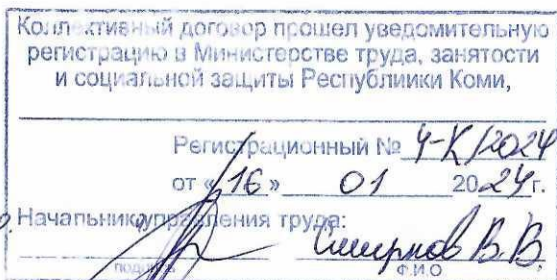 Коллективный договор прошел уведомительную
регистрацию в Министерстве труда, занятости
и социальной защиты Республиики Коми,
Регистрационный № 4-К/2024
от «16» 01 2024г.
Начальник управления труда:
Смирнов В.В.
подпись Ф.И.О.